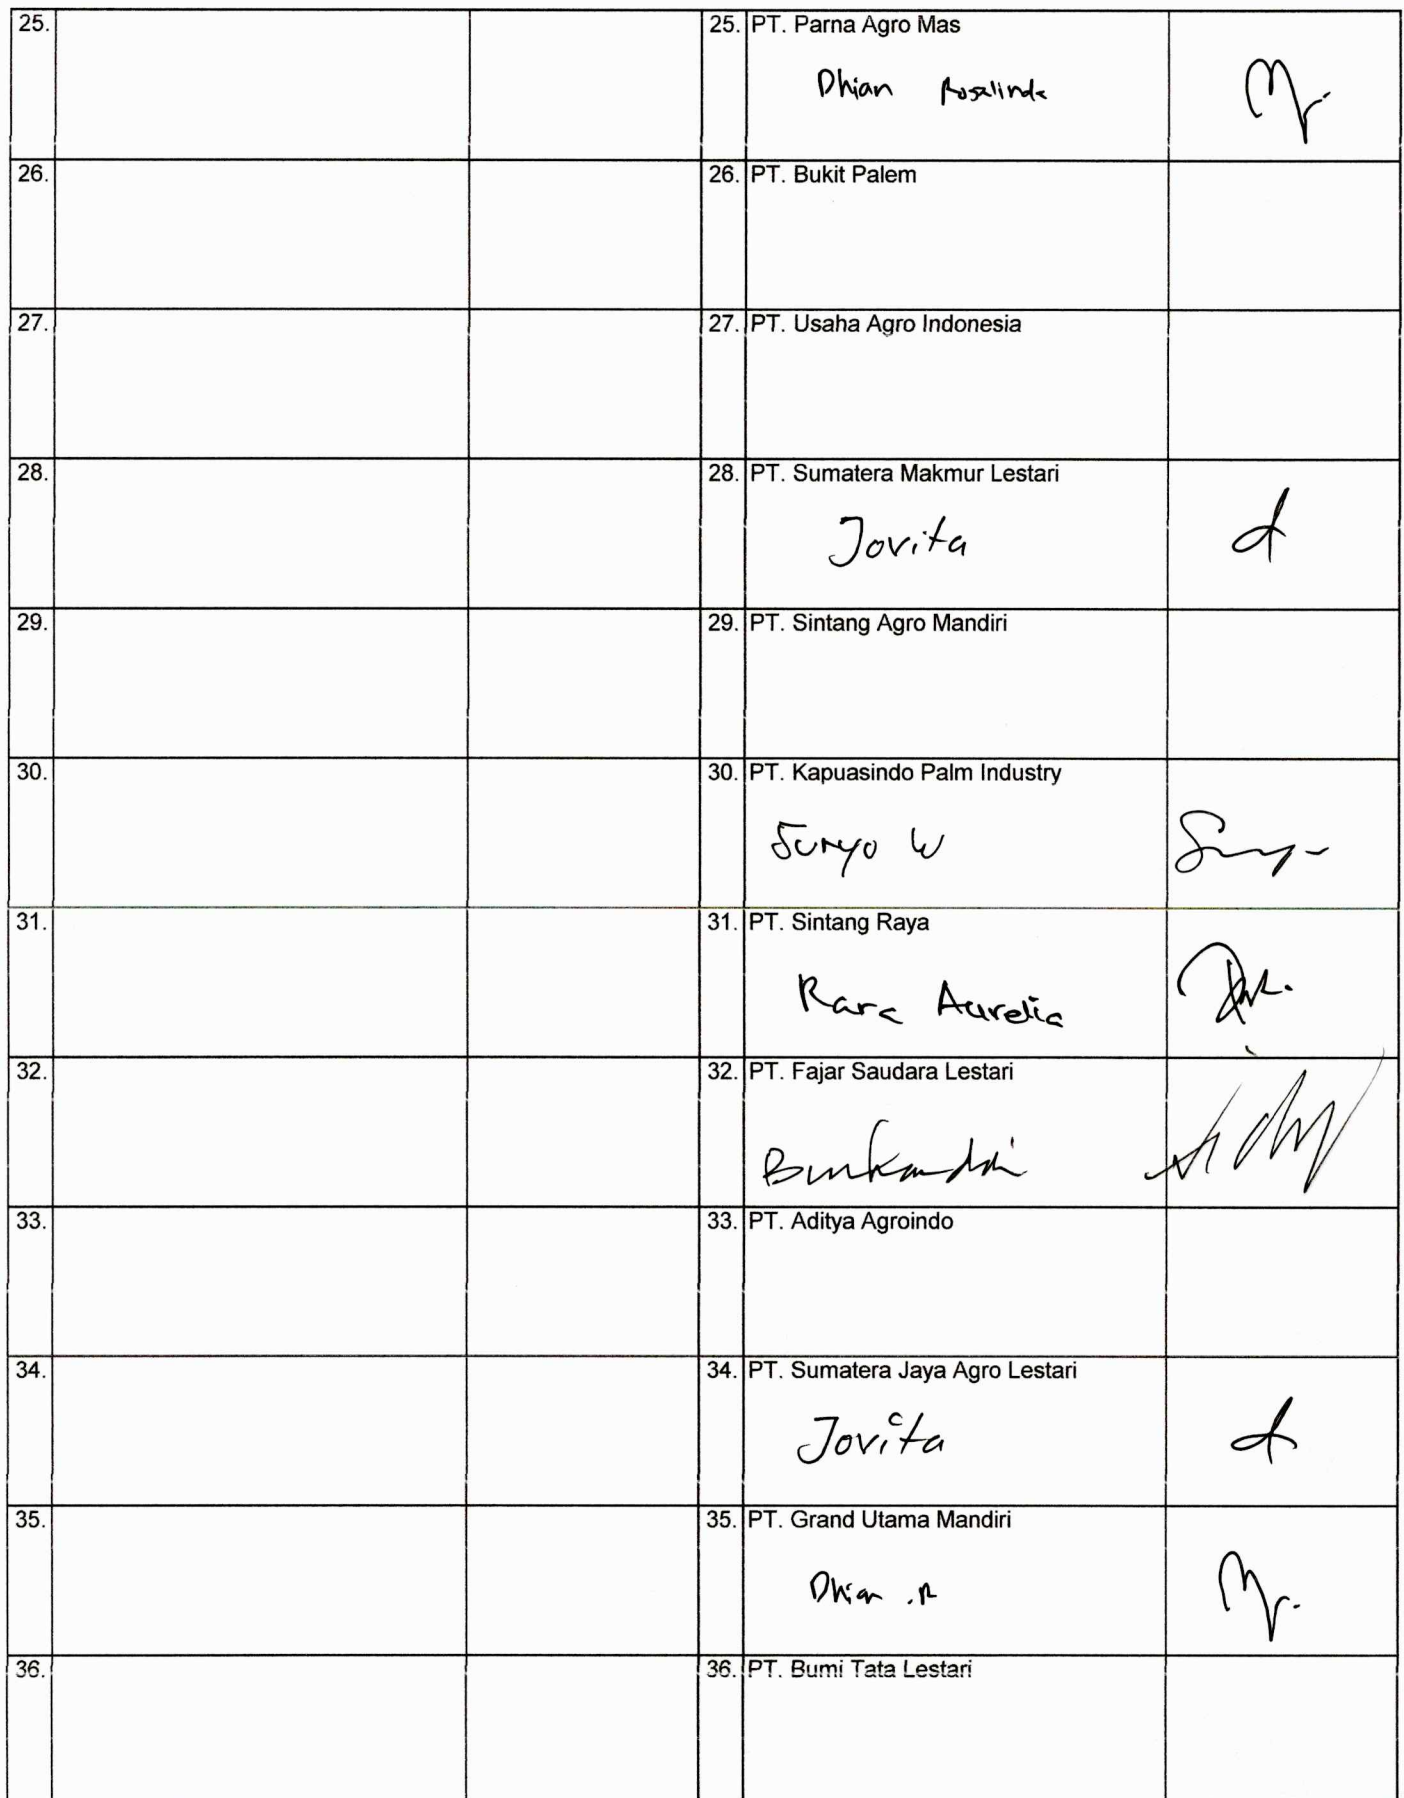 25. 25. PT. Parna Agro Mas
Dhian Rosalinda
26. 26. PT. Bukit Palem
27. 27. PT. Usaha Agro Indonesia
28. 28. PT. Sumatera Makmur Lestari
Jovita
29. 29. PT. Sintang Agro Mandiri
30. 30. PT. Kapuasindo Palm Industry
Suryo W
31. 31. PT. Sintang Raya
Rara Aurelia
32. 32. PT. Fajar Saudara Lestari
33. 33. PT. Aditya Agroindo
34. 34. PT. Sumatera Jaya Agro Lestari
Jovita
35. 35. PT. Grand Utama Mandiri
Dhian .R
36. 36. PT. Bumi Tata Lestari